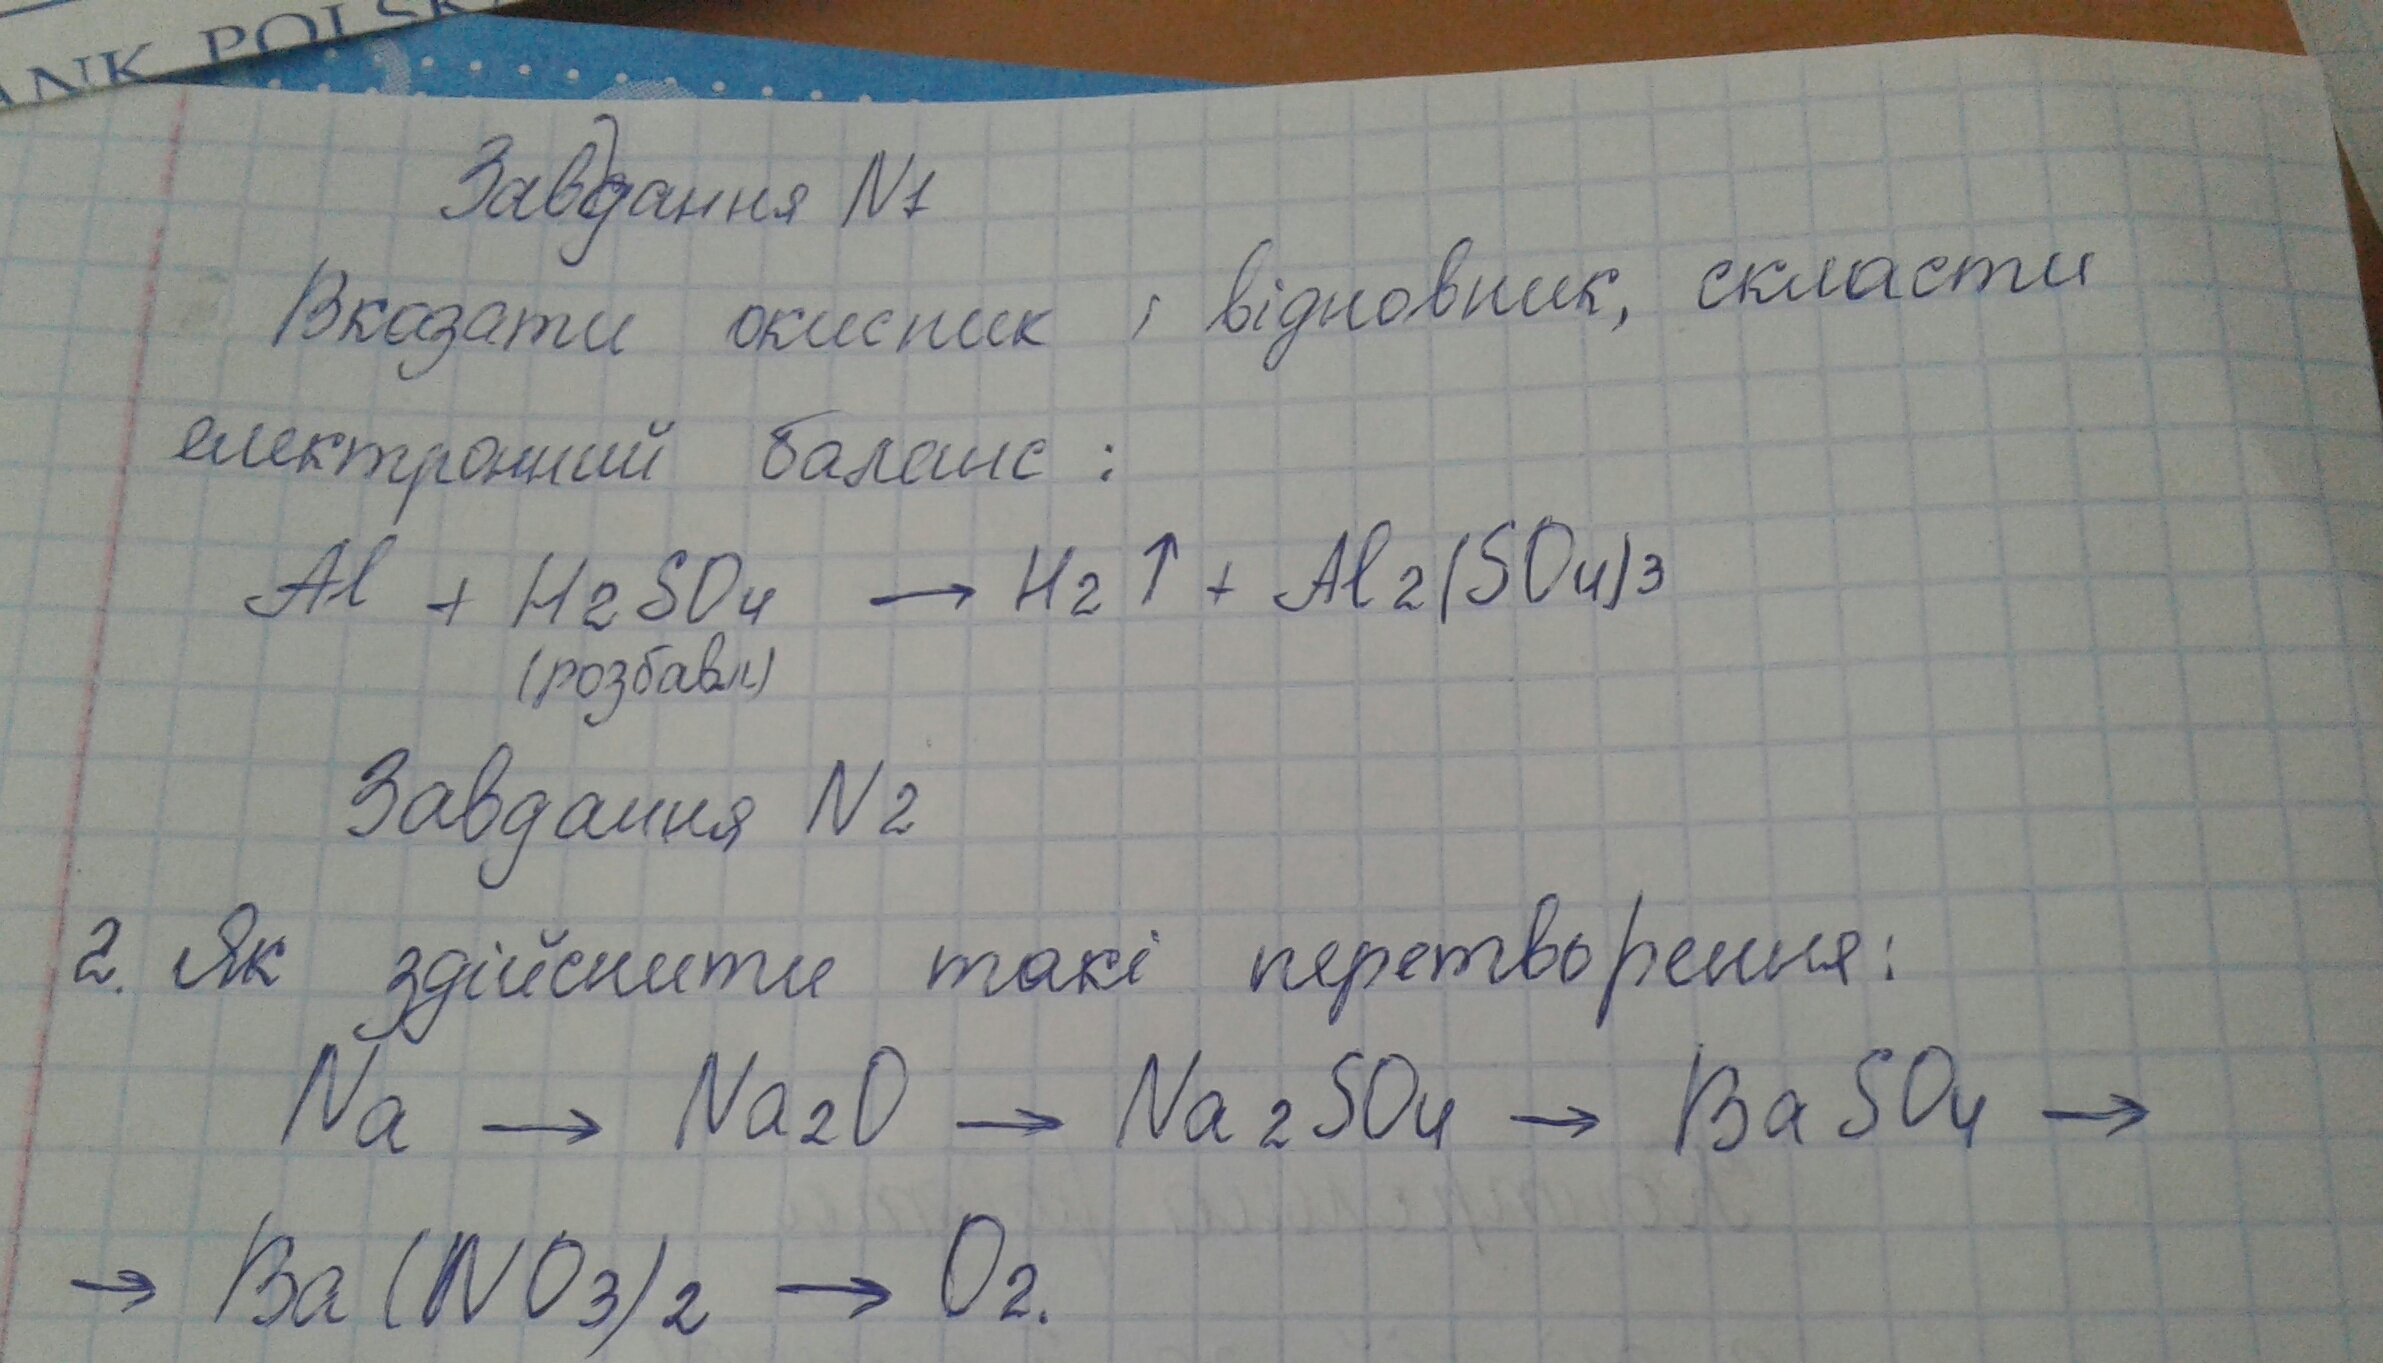 ANK POLSK
Завдання N1
Вказати окисник і відновник, скласти
електронний баланс:
Al + H2SO4 → H2↑ + Al2(SO4)3
(розбавл)
Завдання N2
2. Як здійснити такі перетворення:
Na → Na2O → Na2SO4 → BaSO4 →
→ Ba(NO3)2 → O2.